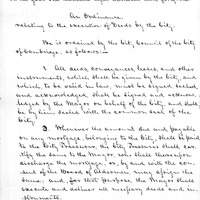 An Ordinance,
relating to the execution of Deeds by the City.
Be it ordained by the City Council of the City
of Cambridge, as follows:
1. All deeds, conveyances, leases, and other
instruments, which shall be given by the City, and
which, to be valid in law, must be signed, sealed,
and acknowledged, shall be signed and acknow-
ledged by the Mayor on behalf of the City, and shall
be by him sealed with the common seal of the
City.
2. Whenever the amount due and payable
on any mortgage, belonging to the City, shall be paid
to the City Treasurer, the City Treasurer shall cer-
tify the same to the Mayor, who shall thereupon
discharge the mortgage; or, by and with the con-
sent of the Board of Aldermen, may assign the
same; and, for that purpose, the Mayor shall
execute and deliver all necessary deeds and in-
struments.